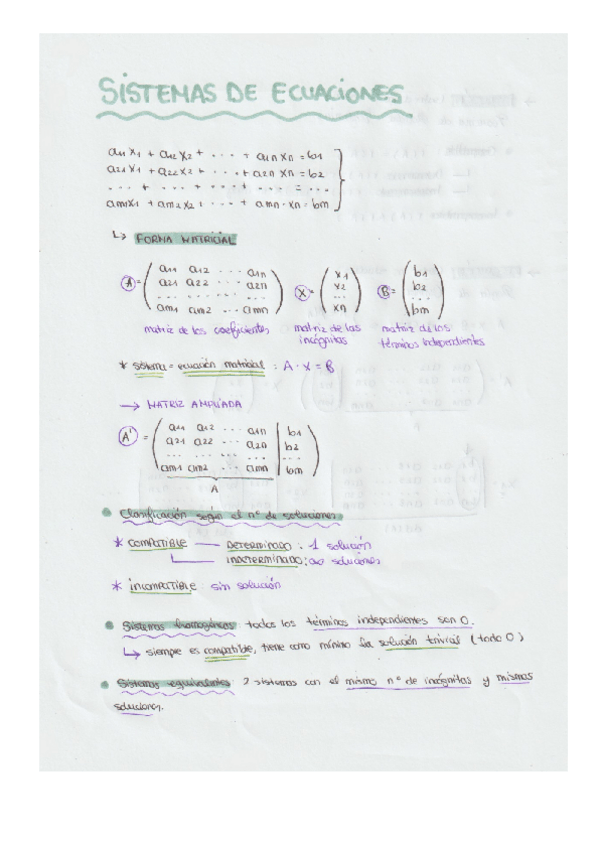 SISTEMAS DE ECUACIONES
a11 x1 + a12 x2 + ... + a1n xn = b1
a21 x1 + a22 x2 + ... + a2n xn = b2
... + ... + ... + ... = ...
am1 x1 + am2 x2 + ... + amn · xn = bm
↳ FORMA MATRICIAL
A = ( a11 a12 ... a1n   X = ( x1   B = ( b1
a21 a22 ... a2n   x2   b2
... ... ... ...   ...   ...
am1 am2 ... amn )   xn )   bm )
matriz de los coeficientes   matriz de las incógnitas   matriz de los términos independientes
* sistema = ecuación matricial : A · X = B
→ MATRIZ AMPLIADA
A' = ( a11 a12 ... a1n | b1
a21 a22 ... a2n | b2
... ... ... ... | ...
am1 am2 ... amn | bm )
A
• Clasificación según el nº de soluciones
* COMPATIBLE — DETERMINADO : 1 solución
INDETERMINADO : ∞ soluciones
* INCOMPATIBLE sin solución
• Sistemas homogéneos todos los términos independientes son 0.
↳ siempre es compatible, tiene como mínimo la solución trivial (todo 0)
• Sistemas equivalentes 2 sistemas con el mismo nº de incógnitas y mismas
soluciones.